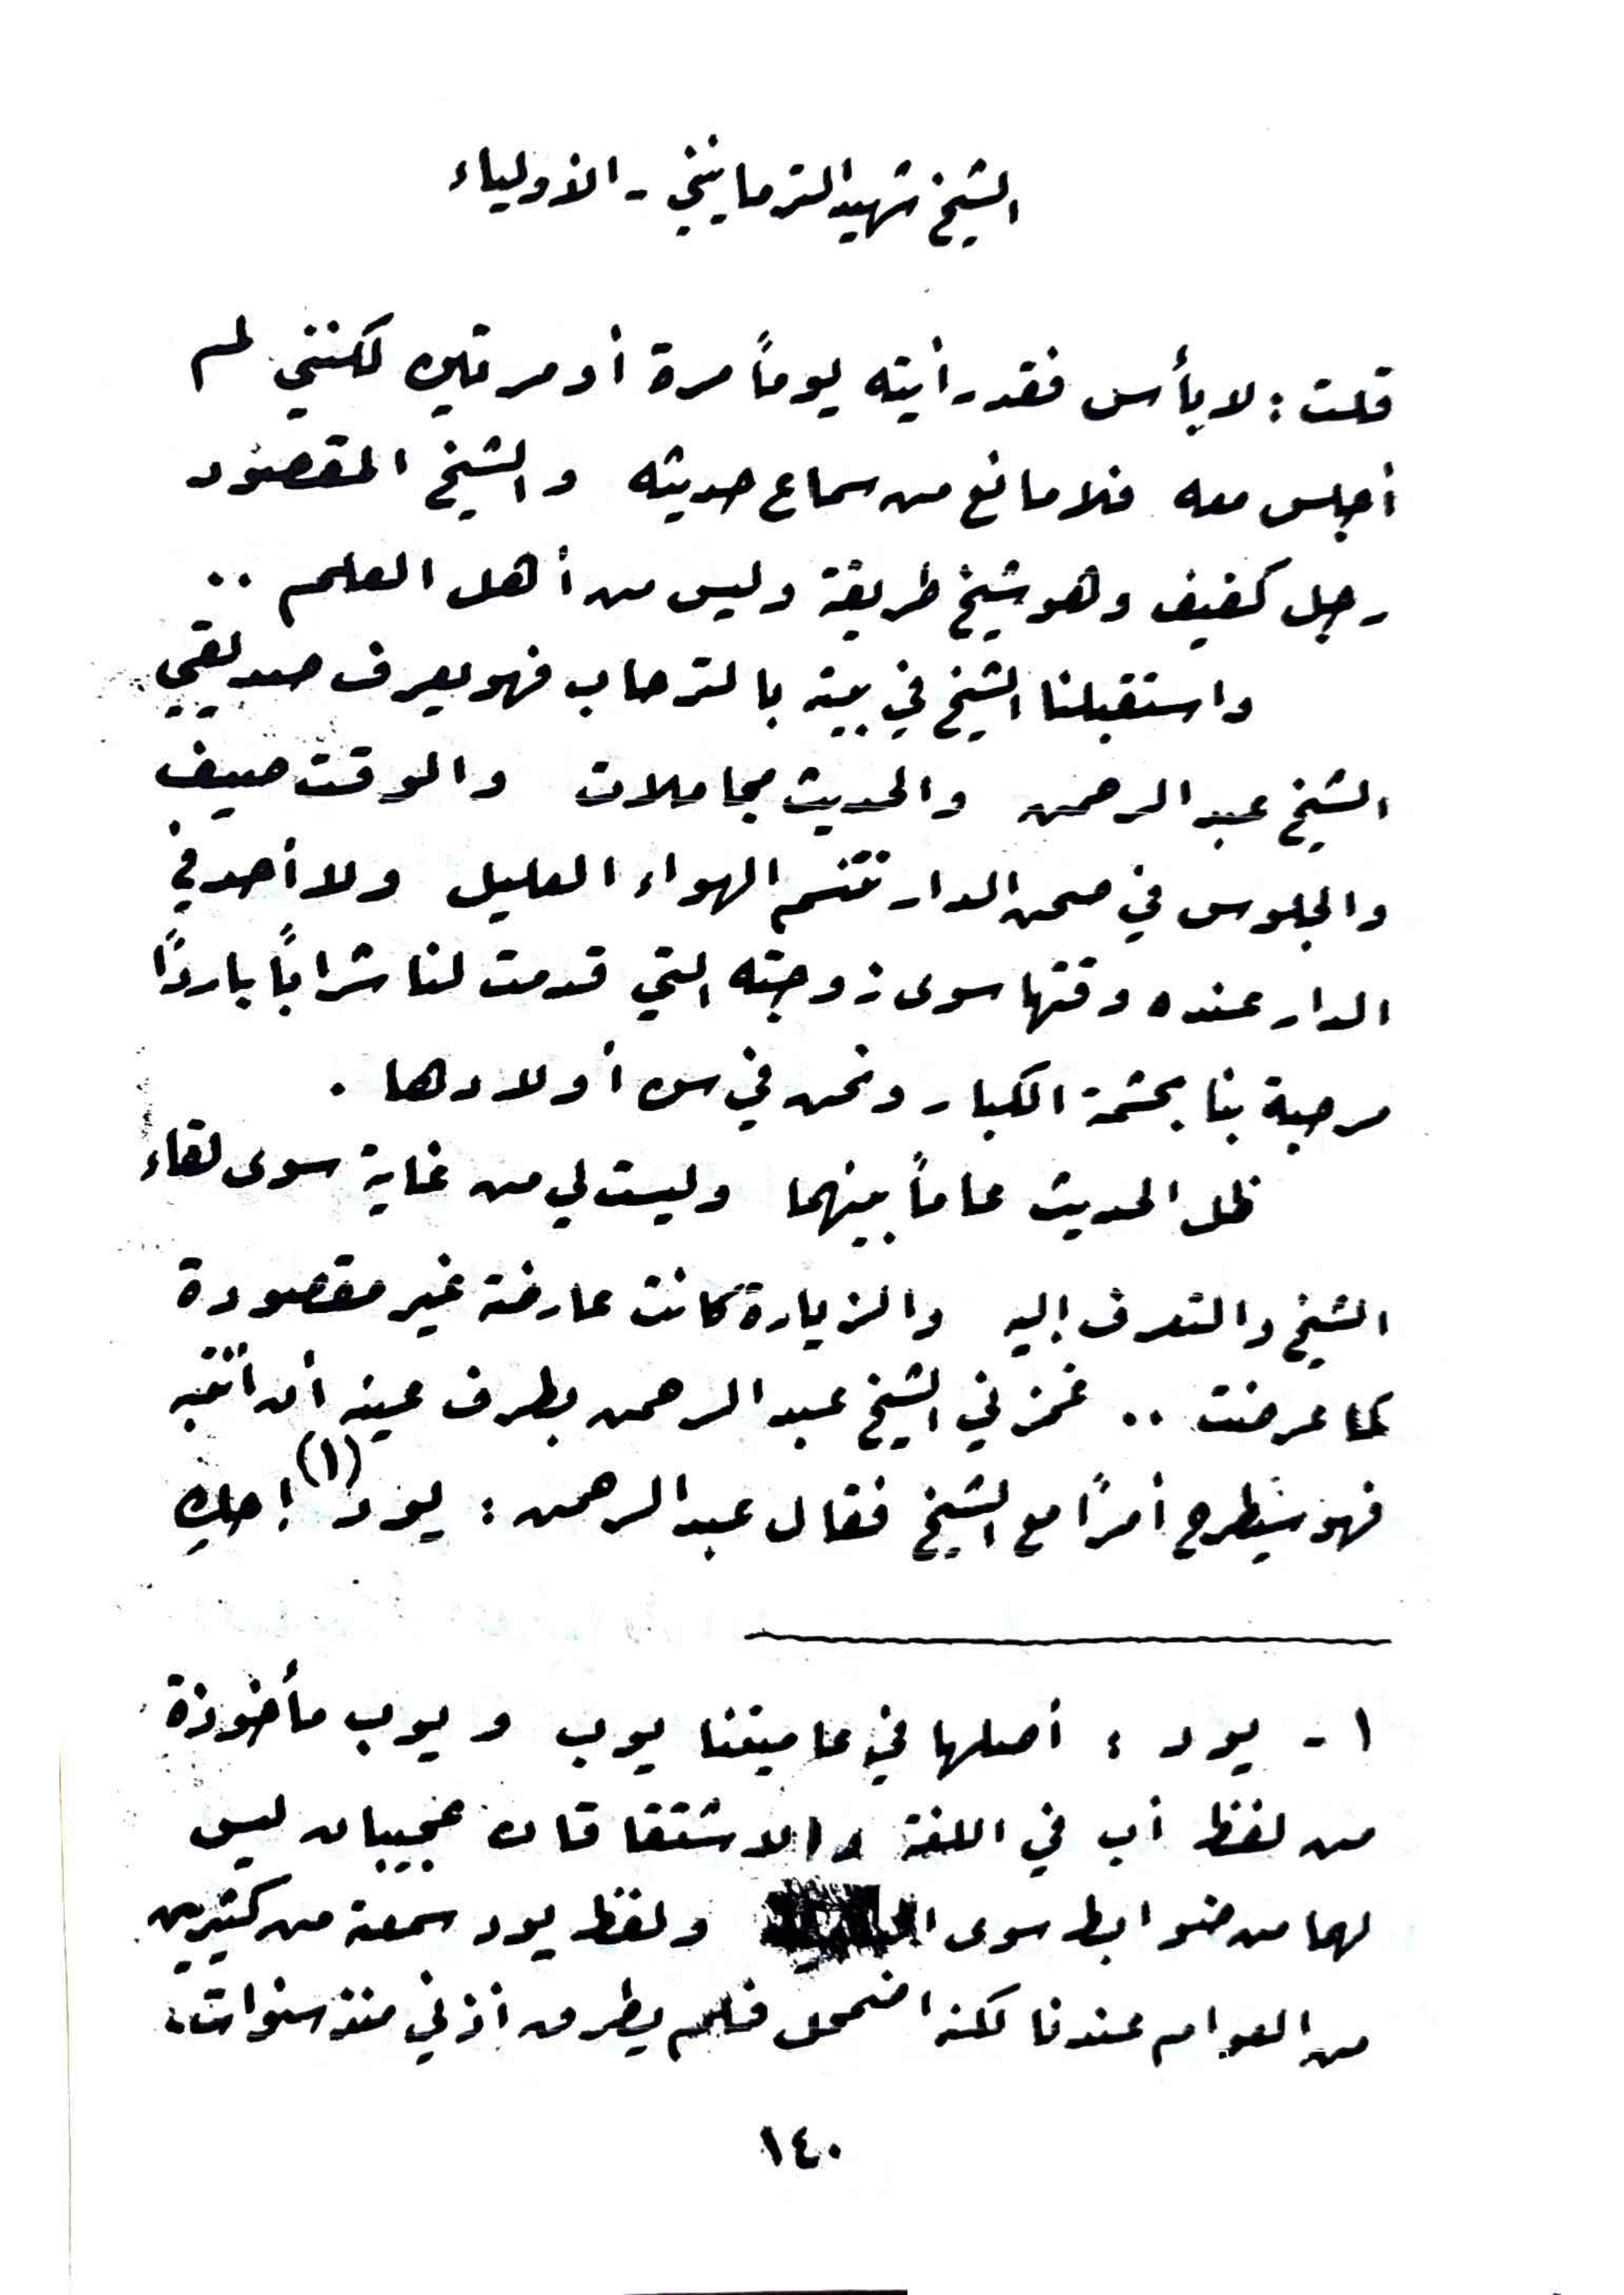 الشيخ شهيد الترمانيني - الأولياء
قلت : لا بأس فقد رأيته يوماً مرة أو مرتين لكنني لم
أجلس معه فلا مانع من سماع حديثه والشيخ المقصود
رجل كفيف وهو شيخ طريقة وليس من أهل العلم ..
واستقبلنا الشيخ في بيته بالترحاب فهو يعرف صديقي
الشيخ عبد الرحمن والحديث مجاملات والوقت صيف
والجلوس في صحن الدار نتنسم الهواء العليل ولا أحد في
الدار عنده وقتها سوى زوجته التي قدمت لنا شراباً بارداً
مرحبة بنا بحشمة الكبار ونحن في سن أولادها .
ظل الحديث عاماً بينهما وليست لي من غاية سوى لقاء
الشيخ والتعرف إليه والزيارة كانت عارضة غير مقصودة
كما عرضت .. غمزني الشيخ عبد الرحمن بطرف عينه أن أنتبه
فهو سيطرح أمراً مع الشيخ فقال عبد الرحمن : يود (١) احكِ
١ - يود : أصلها في عاميتنا يوب ويوب مأخوذة
من لفظ أب في اللغة والاشتقاقان عجيبان ليس
لهما من ضوابط سوى ولفظ يود سمعته من كثيرين
من العوام عندنا لكنه اضمحل فلم يطرق أذني منذ سنوات .
١٤٠